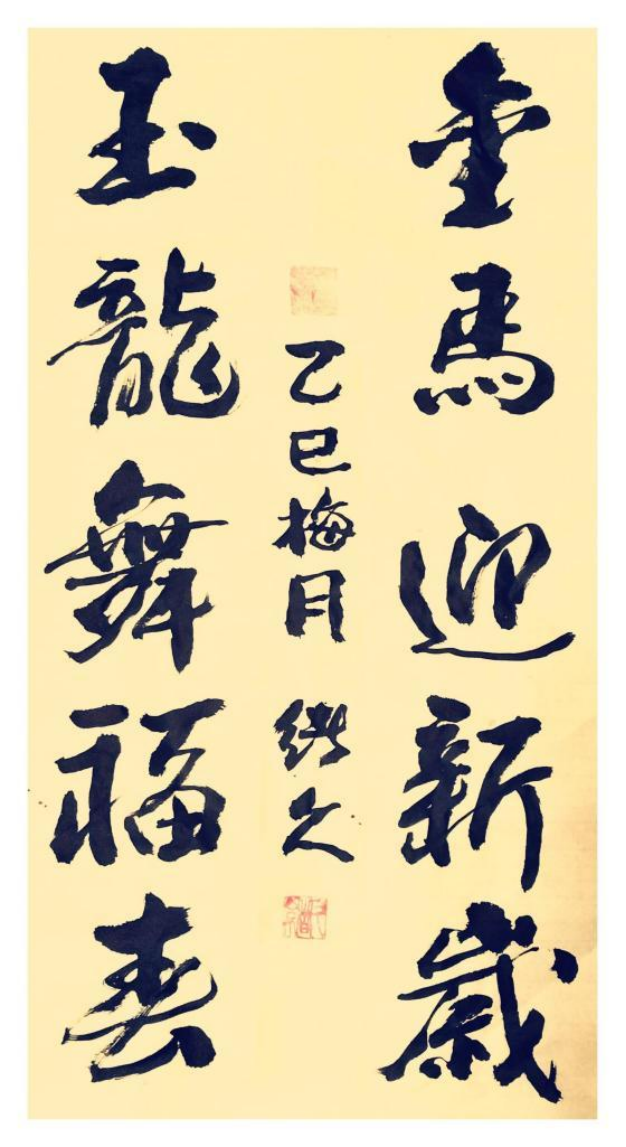 金馬迎新歲
玉龍舞福春
乙巳梅月
久